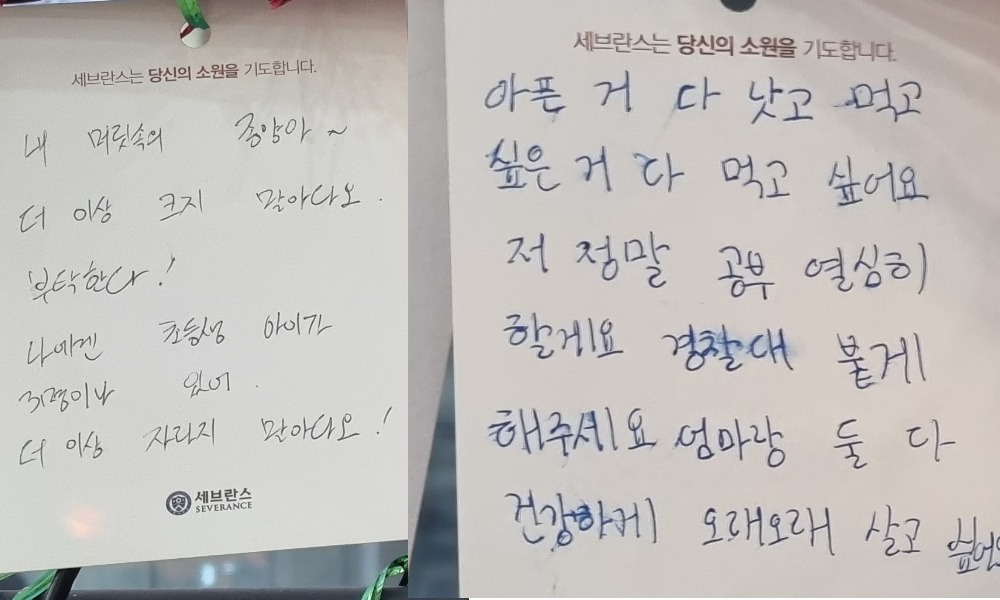 세브란스는 당신의 소원을 기도합니다.
내 머릿속의 종양아~
더 이상 크지 말아다오.
부탁한다!
나에겐 초등생 아이가
3명이나 있어.
더 이상 자라지 말아다오!
세브란스
SEVERANCE
세브란스는 당신의 소원을 기도합니다.
아픈 거 다 낫고 먹고
싶은 거 다 먹고 싶어요
저 정말 공부 열심히
할게요 경찰대 붙게
해주세요 엄마랑 둘 다
건강하게 오래오래 살고 싶어요